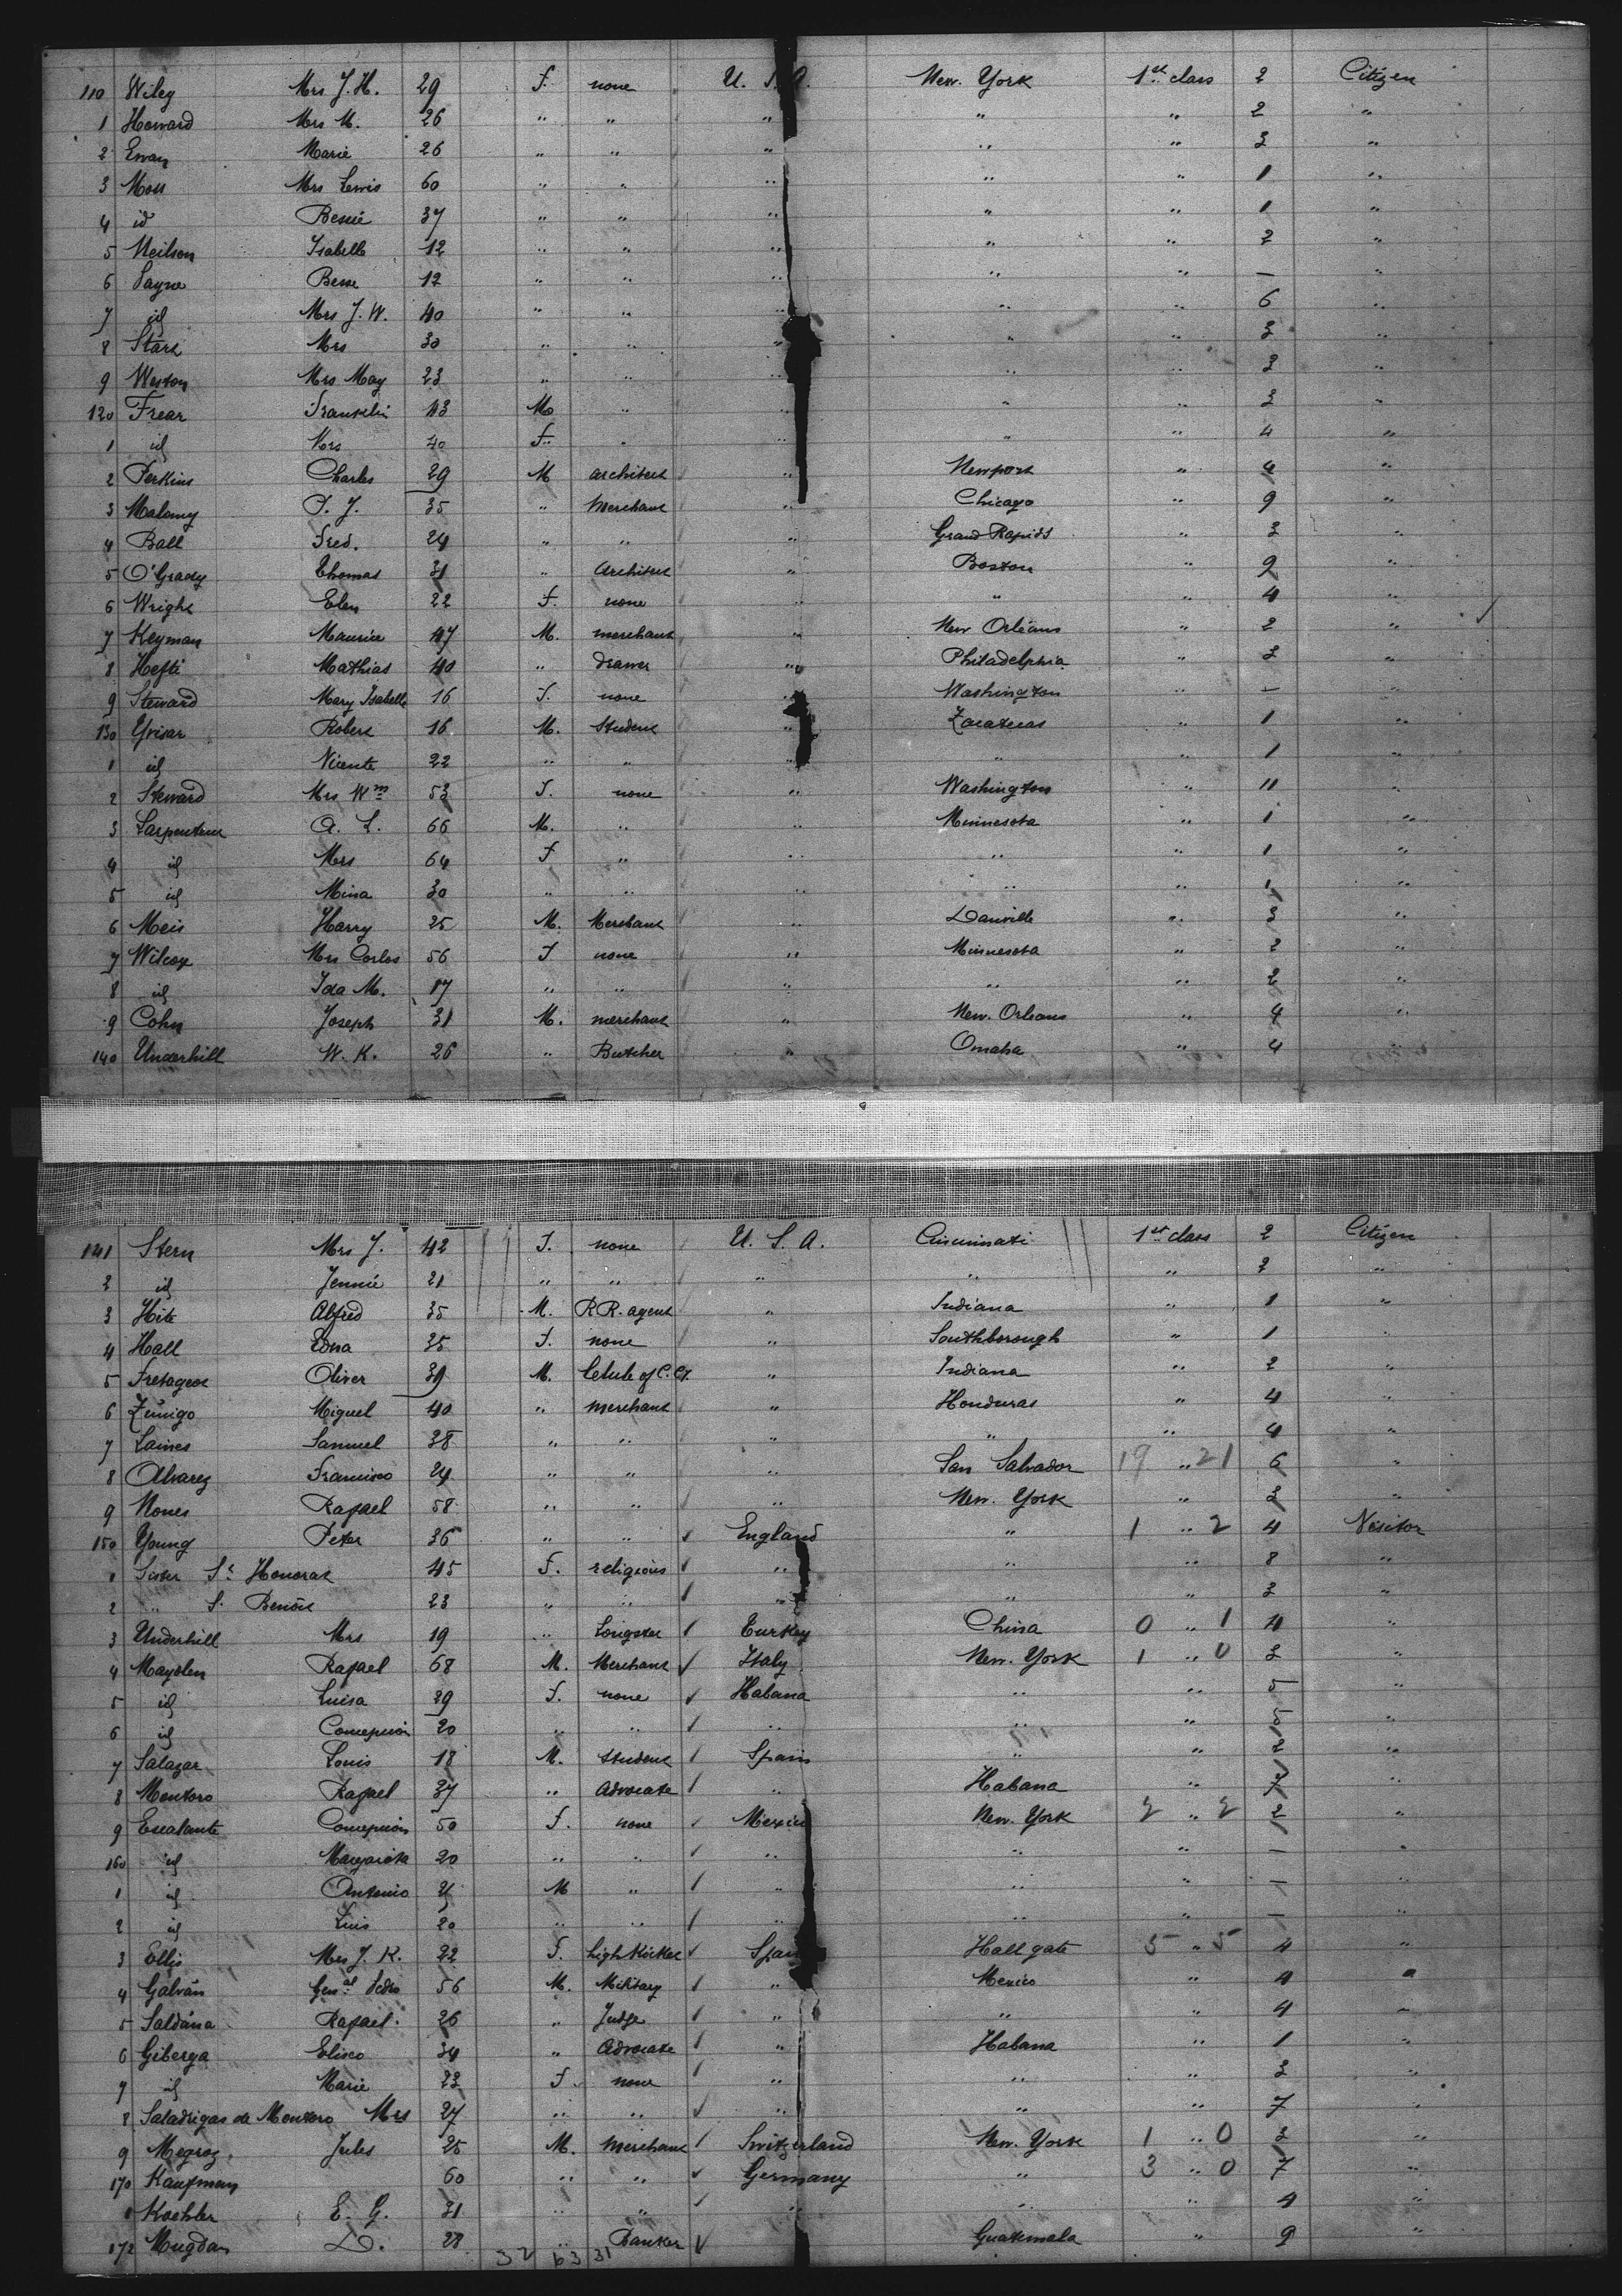 110 Wiley Mrs J. H. 29 F. none U. S. A. New. York 1st class 2 Citizen
1 Howard Mrs M. 26 " " " " " 2 "
2 Ewan Marie 26 " " " " " 3 "
3 Moss Mrs Lewis 60 " " " " " 1 "
4 id Bessie 37 " " " " " 1 "
5 Neilson Isabelle 12 " " " " " 2 "
6 Sayne Besse 12 " " " " " — "
7 id Mrs J. W. 40 " " " " " 6 "
8 Stark Mrs 30 " " " " " 3 "
9 Weston Mrs May 23 " " " " " 3 "
120 Frear Franklin 43 M. " " " " 3 "
1 id Mrs 40 F. " " " " 4 "
2 Perkins Charles 29 M architect " Newport " 4 "
3 Malomy P. J. 35 " Merchant " Chicago " 9 "
4 Ball Fred. 24 " " " Grand Rapids " 3 "
5 O'Grady Thomas 31 " Architect " Boston " 9 "
6 Wright Elen 22 F. none " " " 4 "
7 Keyman Maurice 47 M. merchant " New Orléans " 2 "
8 Hefti Mathias 40 " drawer " Philadelphia " 3 "
9 Steward Mary Isabelle 16 F. none " Washington " — "
130 Yvisar Robert 16 M. Student " Zacatecas " 1 "
1 id Vicente 22 " " " " " 1 "
2 Steward Mrs Wm 53 F. none " Washington " 11 "
3 Larpenteur A. L. 66 M. " " Minnesota " 1 "
4 id Mrs 64 F " " " " 1 "
5 id Mina 30 " " " " " 1 "
6 Meis Harry 25 M. Merchant " Danville " 3 "
7 Wilcox Mrs Carlos 56 F none " Minnesota " 2 "
8 id Ida M. 17 " " " " " 2 "
9 Cohn Joseph 31 M. merchant " New. Orleans " 4 "
140 Underhill W. K. 26 " Butcher " Omaha " 4 "
141 Stern Mrs J. 42 F. none U. S. A. Cincinnati 1st class 2 Citizen
2 id Jennie 21 " " " " " 2 "
3 Hite Alfred 35 M. R R. agent " Indiana " 1 "
4 Hall Edna 35 F. none " Southborough " 1 "
5 Fretageot Oliver 39 M. " Indiana " 2 "
6 Zúnigo Miguel 40 " merchant " Honduras " 4 "
7 Laines Samuel 38 " " " " " 4 "
8 Alvarez Francisco 24 " " " San Salvador 19 " 21 6 "
9 Nones Rafael 58 " " " New. York " 3 "
150 Young Peter 36 " " England " 1 " 2 4 Visitor
1 Sister St Honorat 45 F. religious " " " 8 "
2 " S. Benoît 23 " " " " " 3 "
3 Underhill Mrs 19 " Turkey China 0 " 1 4 "
4 Mayolen Rafael 68 M. Merchant Italy New. York 1 " 0 3 "
5 id Luisa 29 F. none Habana " " 5 "
6 id Concepcion 20 " " " " " 5 "
7 Salazar Louis 18 M. Student Spain " " 2 "
8 Montoro Rafael 37 " Advocate " Habana " 7 "
9 Escalante Concepcion 50 F. none Mexico New. York 2 " 2 2 "
160 id Margarita 20 " " " " " — "
1 id Antonio 21 M " " " " — "
2 id Luis 20 " " " " " — "
3 Ellis Mrs J. K. 22 F. high Kicker Spain Hall gate 5 " 5 4 "
4 Galván Genal Pedro 56 M. Military " Mexico " 4 "
5 Saldána Rafael. 26 " Judge " " " 4 "
6 Giberga Eliseo 34 " Advocate " Habana " 1 "
7 id Marie 23 F. none " " " 3 "
8 Saladrigas de Montoro Mrs 27 " " " " " 7 "
9 Megroz Jules 25 M. Merchant Switzerland New. York 1 " 0 3 "
170 Kaufman 60 " " Germany " 3 " 0 7 "
1 Koehler E. G. 31 " " " " " 4 "
172 Mugdan D. 28 " Banker " Guatemala " 9 "
32 63 31